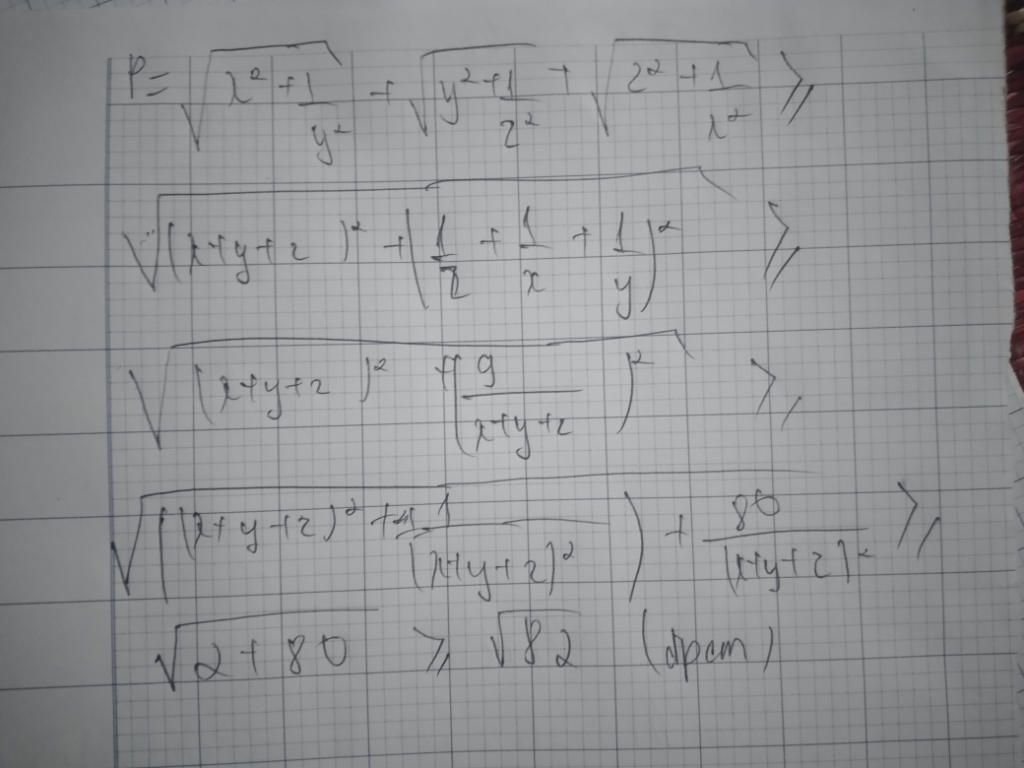 P = √(x² + 1/y²) + √(y² + 1/z²) + √(z² + 1/x²) ⩾
√((x+y+z)² + (1/z + 1/x + 1/y)²) ⩾
√((x+y+z)² + (9/(x+y+z))²) ⩾
√(((x+y+z)² + 1/(x+y+z)²) + 80/(x+y+z)²) ⩾
√(2+80) ⩾ √82 (đpcm)